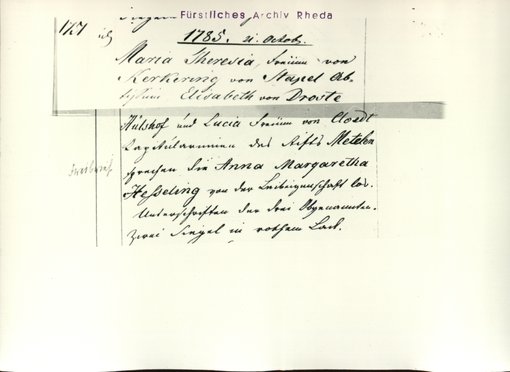 Siegeln
Fürstliches Archiv Rheda
1727 ich
1785. 21. Octob.
Maria Theresia, Freiinn von
Kerkering von Stapel Äb-
tissinn Elisabeth von Droste
Hülshof und Lucia Freiinn von Cloedt
Capitularinnen des Stifts Metelen
sprechen die Anna Margaretha
Hesseling von der Leibeigenschaft los.
Unterschriften der drei Obgenannten.
Zwei Siegel in rothem Lack.